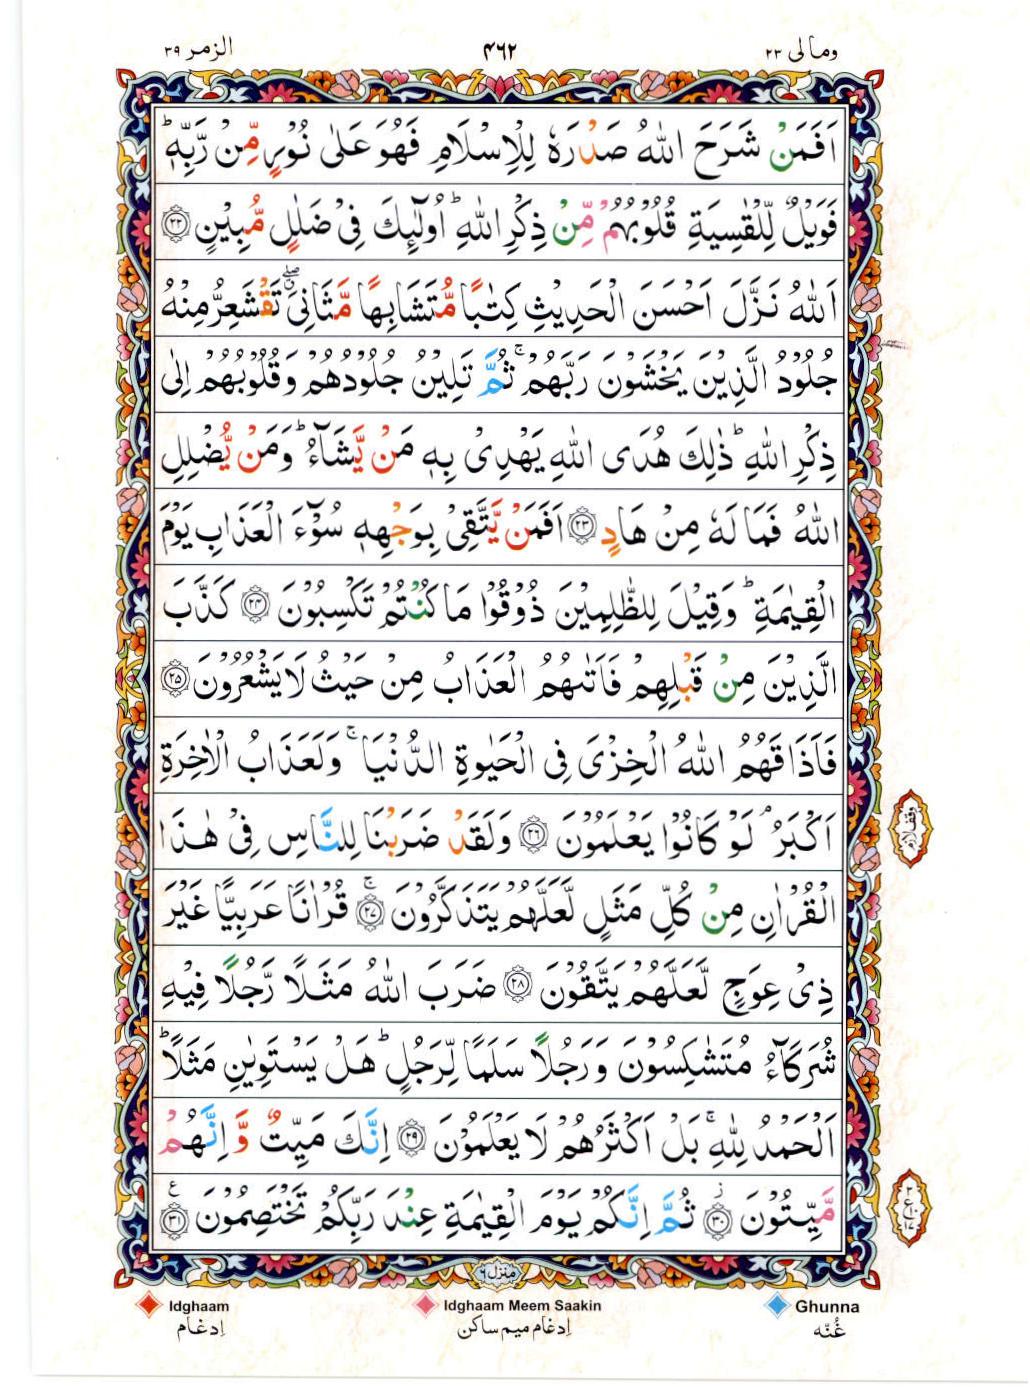 الزمر ٣٩ ٤٦٢ ومالی ٢٣
اَفَمَنْ شَرَحَ اللّٰهُ صَدْرَهٗ لِلْاِسْلَامِ فَهُوَ عَلٰى نُوْرٍ مِّنْ رَّبِّهٖ ؕ
فَوَيْلٌ لِّلْقٰسِيَةِ قُلُوْبُهُمْ مِّنْ ذِكْرِ اللّٰهِ ؕ اُولٰٓئِكَ فِیْ ضَلٰلٍ مُّبِيْنٍ ﴿٢٢﴾
اَللّٰهُ نَزَّلَ اَحْسَنَ الْحَدِيْثِ كِتٰبًا مُّتَشَابِهًا مَّثَانِیَ ۖۗ تَقْشَعِرُّ مِنْهُ
جُلُوْدُ الَّذِيْنَ يَخْشَوْنَ رَبَّهُمْ ۚ ثُمَّ تَلِيْنُ جُلُوْدُهُمْ وَقُلُوْبُهُمْ اِلٰى
ذِكْرِ اللّٰهِ ؕ ذٰلِكَ هُدَى اللّٰهِ يَهْدِیْ بِهٖ مَنْ يَّشَآءُ ؕ وَمَنْ يُّضْلِلِ
اللّٰهُ فَمَا لَهٗ مِنْ هَادٍ ﴿٢٣﴾ اَفَمَنْ يَّتَّقِیْ بِوَجْهِهٖ سُوْٓءَ الْعَذَابِ يَوْمَ
الْقِيٰمَةِ ؕ وَقِيْلَ لِلظّٰلِمِيْنَ ذُوْقُوْا مَا كُنْتُمْ تَكْسِبُوْنَ ﴿٢٤﴾ كَذَّبَ
الَّذِيْنَ مِنْ قَبْلِهِمْ فَاَتٰىهُمُ الْعَذَابُ مِنْ حَيْثُ لَا يَشْعُرُوْنَ ﴿٢٥﴾
فَاَذَاقَهُمُ اللّٰهُ الْخِزْیَ فِی الْحَيٰوةِ الدُّنْيَا ۚ وَلَعَذَابُ الْاٰخِرَةِ
اَكْبَرُ ۘ لَوْ كَانُوْا يَعْلَمُوْنَ ﴿٢٦﴾ وَلَقَدْ ضَرَبْنَا لِلنَّاسِ فِیْ هٰذَا
وقف لازم
الْقُرْاٰنِ مِنْ كُلِّ مَثَلٍ لَّعَلَّهُمْ يَتَذَكَّرُوْنَ ۚ ﴿٢٧﴾ قُرْاٰنًا عَرَبِيًّا غَيْرَ
ذِیْ عِوَجٍ لَّعَلَّهُمْ يَتَّقُوْنَ ﴿٢٨﴾ ضَرَبَ اللّٰهُ مَثَلًا رَّجُلًا فِيْهِ
شُرَكَآءُ مُتَشٰكِسُوْنَ وَرَجُلًا سَلَمًا لِّرَجُلٍ ؕ هَلْ يَسْتَوِيٰنِ مَثَلًا ؕ
اَلْحَمْدُ لِلّٰهِ ۚ بَلْ اَكْثَرُهُمْ لَا يَعْلَمُوْنَ ﴿٢٩﴾ اِنَّكَ مَيِّتٌ وَّاِنَّهُمْ
مَّيِّتُوْنَ ؗ ﴿٣٠﴾ ثُمَّ اِنَّكُمْ يَوْمَ الْقِيٰمَةِ عِنْدَ رَبِّكُمْ تَخْتَصِمُوْنَ ﴿٣١﴾ ع
منزل ٦
Idghaam Idghaam Meem Saakin Ghunna
اِدغام اِدغام میم ساکن غُنّه